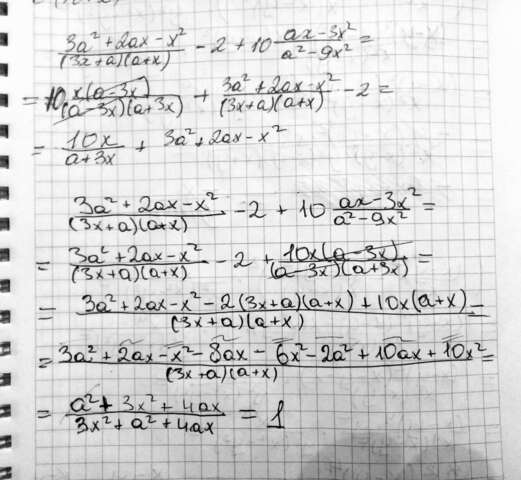 (3a² + 2ax - x²)/((3x+a)(a+x)) - 2 + 10 (ax - 3x²)/(a² - 9x²) =
= 10 x(a-3x)/((a-3x)(a+3x)) + (3a² + 2ax - x²)/((3x+a)(a+x)) - 2 =
= 10x/(a+3x) + 3a² + 2ax - x²
(3a² + 2ax - x²)/((3x+a)(a+x)) - 2 + 10 (ax - 3x²)/(a² - 9x²) =
= (3a² + 2ax - x²)/((3x+a)(a+x)) - 2 + 10x(a-3x)/((a-3x)(a+3x)) =
= (3a² + 2ax - x² - 2(3x+a)(a+x) + 10x(a+x))/((3x+a)(a+x)) =
= (3a² + 2ax - x² - 8ax - 6x² - 2a² + 10ax + 10x²)/((3x+a)(a+x)) =
= (a² + 3x² + 4ax)/(3x² + a² + 4ax) = 1